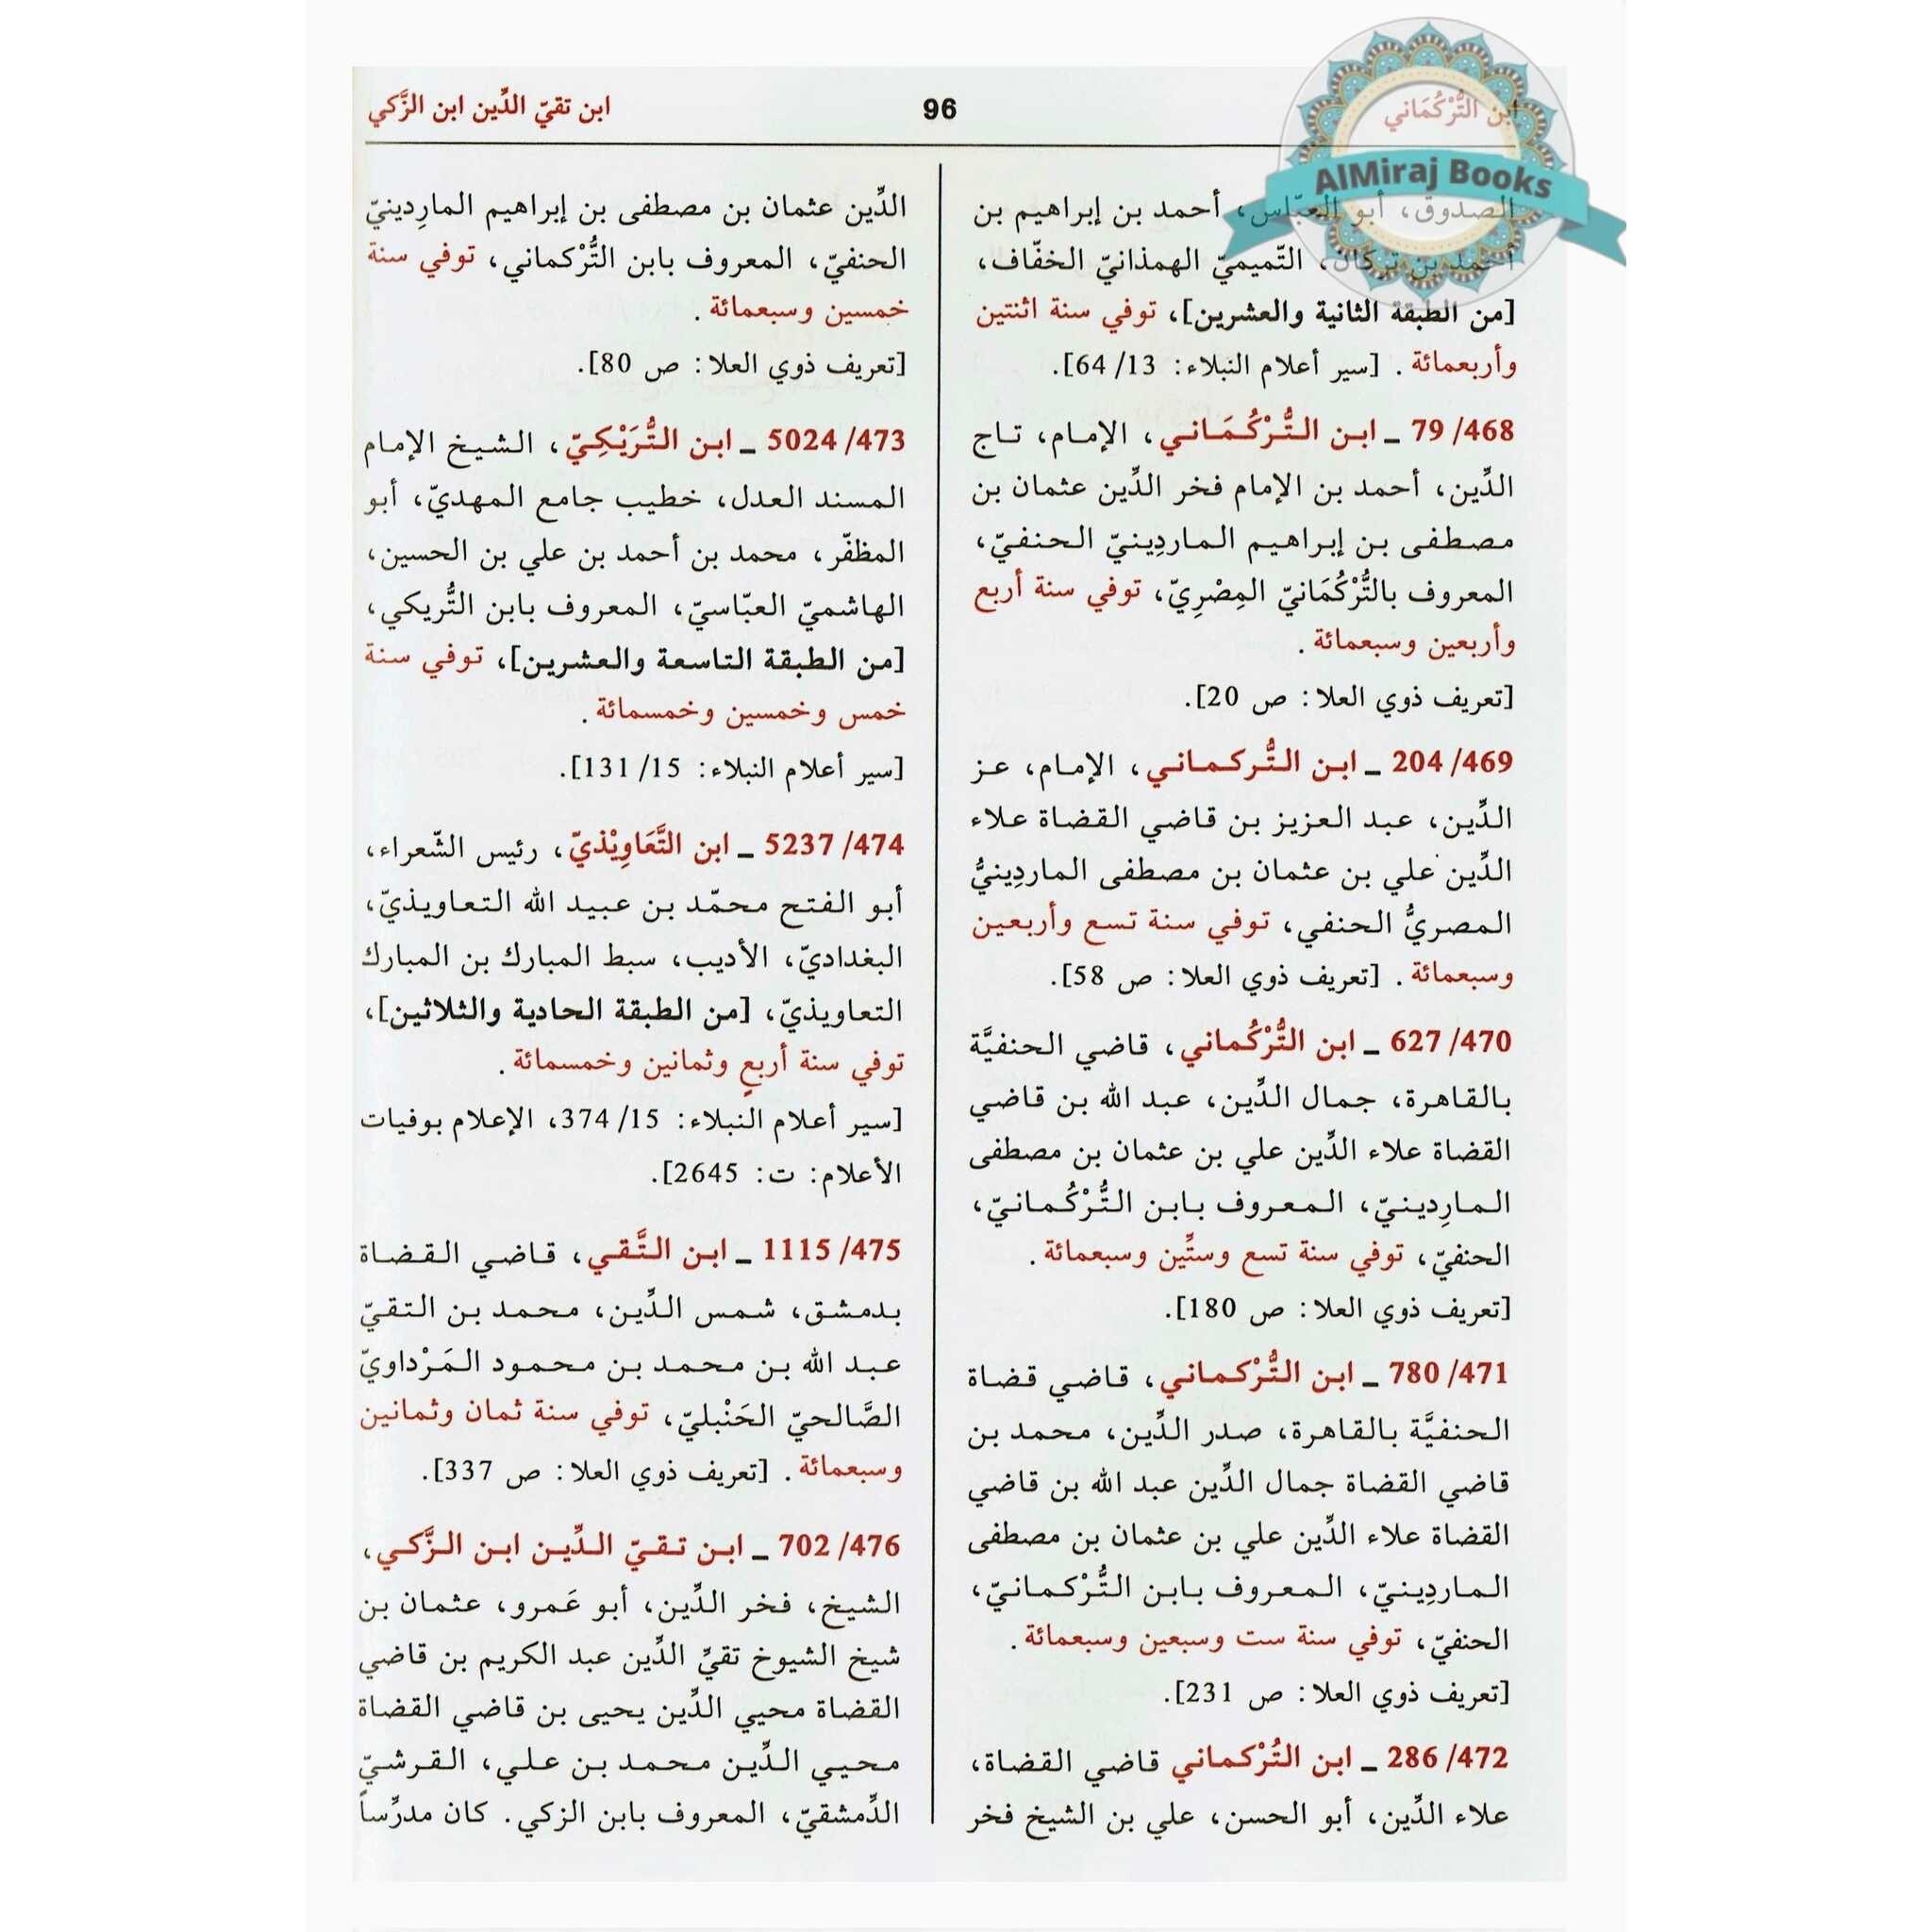 ابن التُّرْكُمَاني
96
ابن تقيّ الدِّين ابن الزَّكي
AlMiraj Books
الصدوق، أبو العبّاس، أحمد بن إبراهيم بن
أحمد بن تركان، التّميميّ الهمذانيّ الخفّاف،
[من الطبقة الثانية والعشرين]، توفي سنة اثنتين
وأربعمائة. [سير أعلام النبلاء: 13/ 64].
468/ 79 ـ ابن التُّرْكُمَاني، الإمام، تاج
الدِّين، أحمد بن الإمام فخر الدِّين عثمان بن
مصطفى بن إبراهيم الماردِينيّ الحنفيّ،
المعروف بالتُّرْكُمَانيّ المِصْرِيّ، توفي سنة أربع
وأربعين وسبعمائة.
[تعريف ذوي العلا: ص 20].
469/ 204 ـ ابن التُّركماني، الإمام، عز
الدِّين، عبد العزيز بن قاضي القضاة علاء
الدِّين علي بن عثمان بن مصطفى الماردِينيُّ
المصريُّ الحنفي، توفي سنة تسع وأربعين
وسبعمائة. [تعريف ذوي العلا: ص 58].
470/ 627 ـ ابن التُّرْكُماني، قاضي الحنفيَّة
بالقاهرة، جمال الدِّين، عبد الله بن قاضي
القضاة علاء الدِّين علي بن عثمان بن مصطفى
المارِدينيّ، المعروف بابن التُّرْكُمانيّ،
الحنفيّ، توفي سنة تسع وستِّين وسبعمائة.
[تعريف ذوي العلا: ص 180].
471/ 780 ـ ابن التُّرْكماني، قاضي قضاة
الحنفيَّة بالقاهرة، صدر الدِّين، محمد بن
قاضي القضاة جمال الدِّين عبد الله بن قاضي
القضاة علاء الدِّين علي بن عثمان بن مصطفى
الماردِينيّ، المعروف بابن التُّرْكمانيّ،
الحنفيّ، توفي سنة ست وسبعين وسبعمائة.
[تعريف ذوي العلا: ص 231].
472/ 286 ـ ابن التُرْكماني قاضي القضاة،
علاء الدِّين، أبو الحسن، علي بن الشيخ فخر
الدِّين عثمان بن مصطفى بن إبراهيم المارِدينيّ
الحنفيّ، المعروف بابن التُّرْكماني، توفي سنة
خمسين وسبعمائة.
[تعريف ذوي العلا: ص 80].
473/ 5024 ـ ابن التُّرَيْكِيّ، الشيخ الإمام
المسند العدل، خطيب جامع المهديّ، أبو
المظفّر، محمد بن أحمد بن علي بن الحسين،
الهاشميّ العبّاسيّ، المعروف بابن التُّريكي،
[من الطبقة التاسعة والعشرين]، توفي سنة
خمس وخمسين وخمسمائة.
[سير أعلام النبلاء: 15/ 131].
474/ 5237 ـ ابن التَّعَاوِيْذيّ، رئيس الشّعراء،
أبو الفتح محمّد بن عبيد الله التعاويذيّ،
البغداديّ، الأديب، سبط المبارك بن المبارك
التعاويذيّ، [من الطبقة الحادية والثلاثين]،
توفي سنة أربعٍ وثمانين وخمسمائة.
[سير أعلام النبلاء: 15/ 374، الإعلام بوفيات
الأعلام: ت: 2645].
475/ 1115 ـ ابن التَّقي، قاضي القضاة
بدمشق، شمس الدِّين، محمد بن التقيّ
عبد الله بن محمد بن محمود المَرْداويّ
الصَّالحيّ الحَنْبليّ، توفي سنة ثمان وثمانين
وسبعمائة. [تعريف ذوي العلا: ص 337].
476/ 702 ـ ابن تقيّ الدِّين ابن الزَّكي،
الشيخ، فخر الدِّين، أبو عَمرو، عثمان بن
شيخ الشيوخ تقيِّ الدِّين عبد الكريم بن قاضي
القضاة محيي الدِّين يحيى بن قاضي القضاة
محيي الدِّين محمد بن علي، القرشيّ
الدِّمشقيّ، المعروف بابن الزكي. كان مدرِّساً